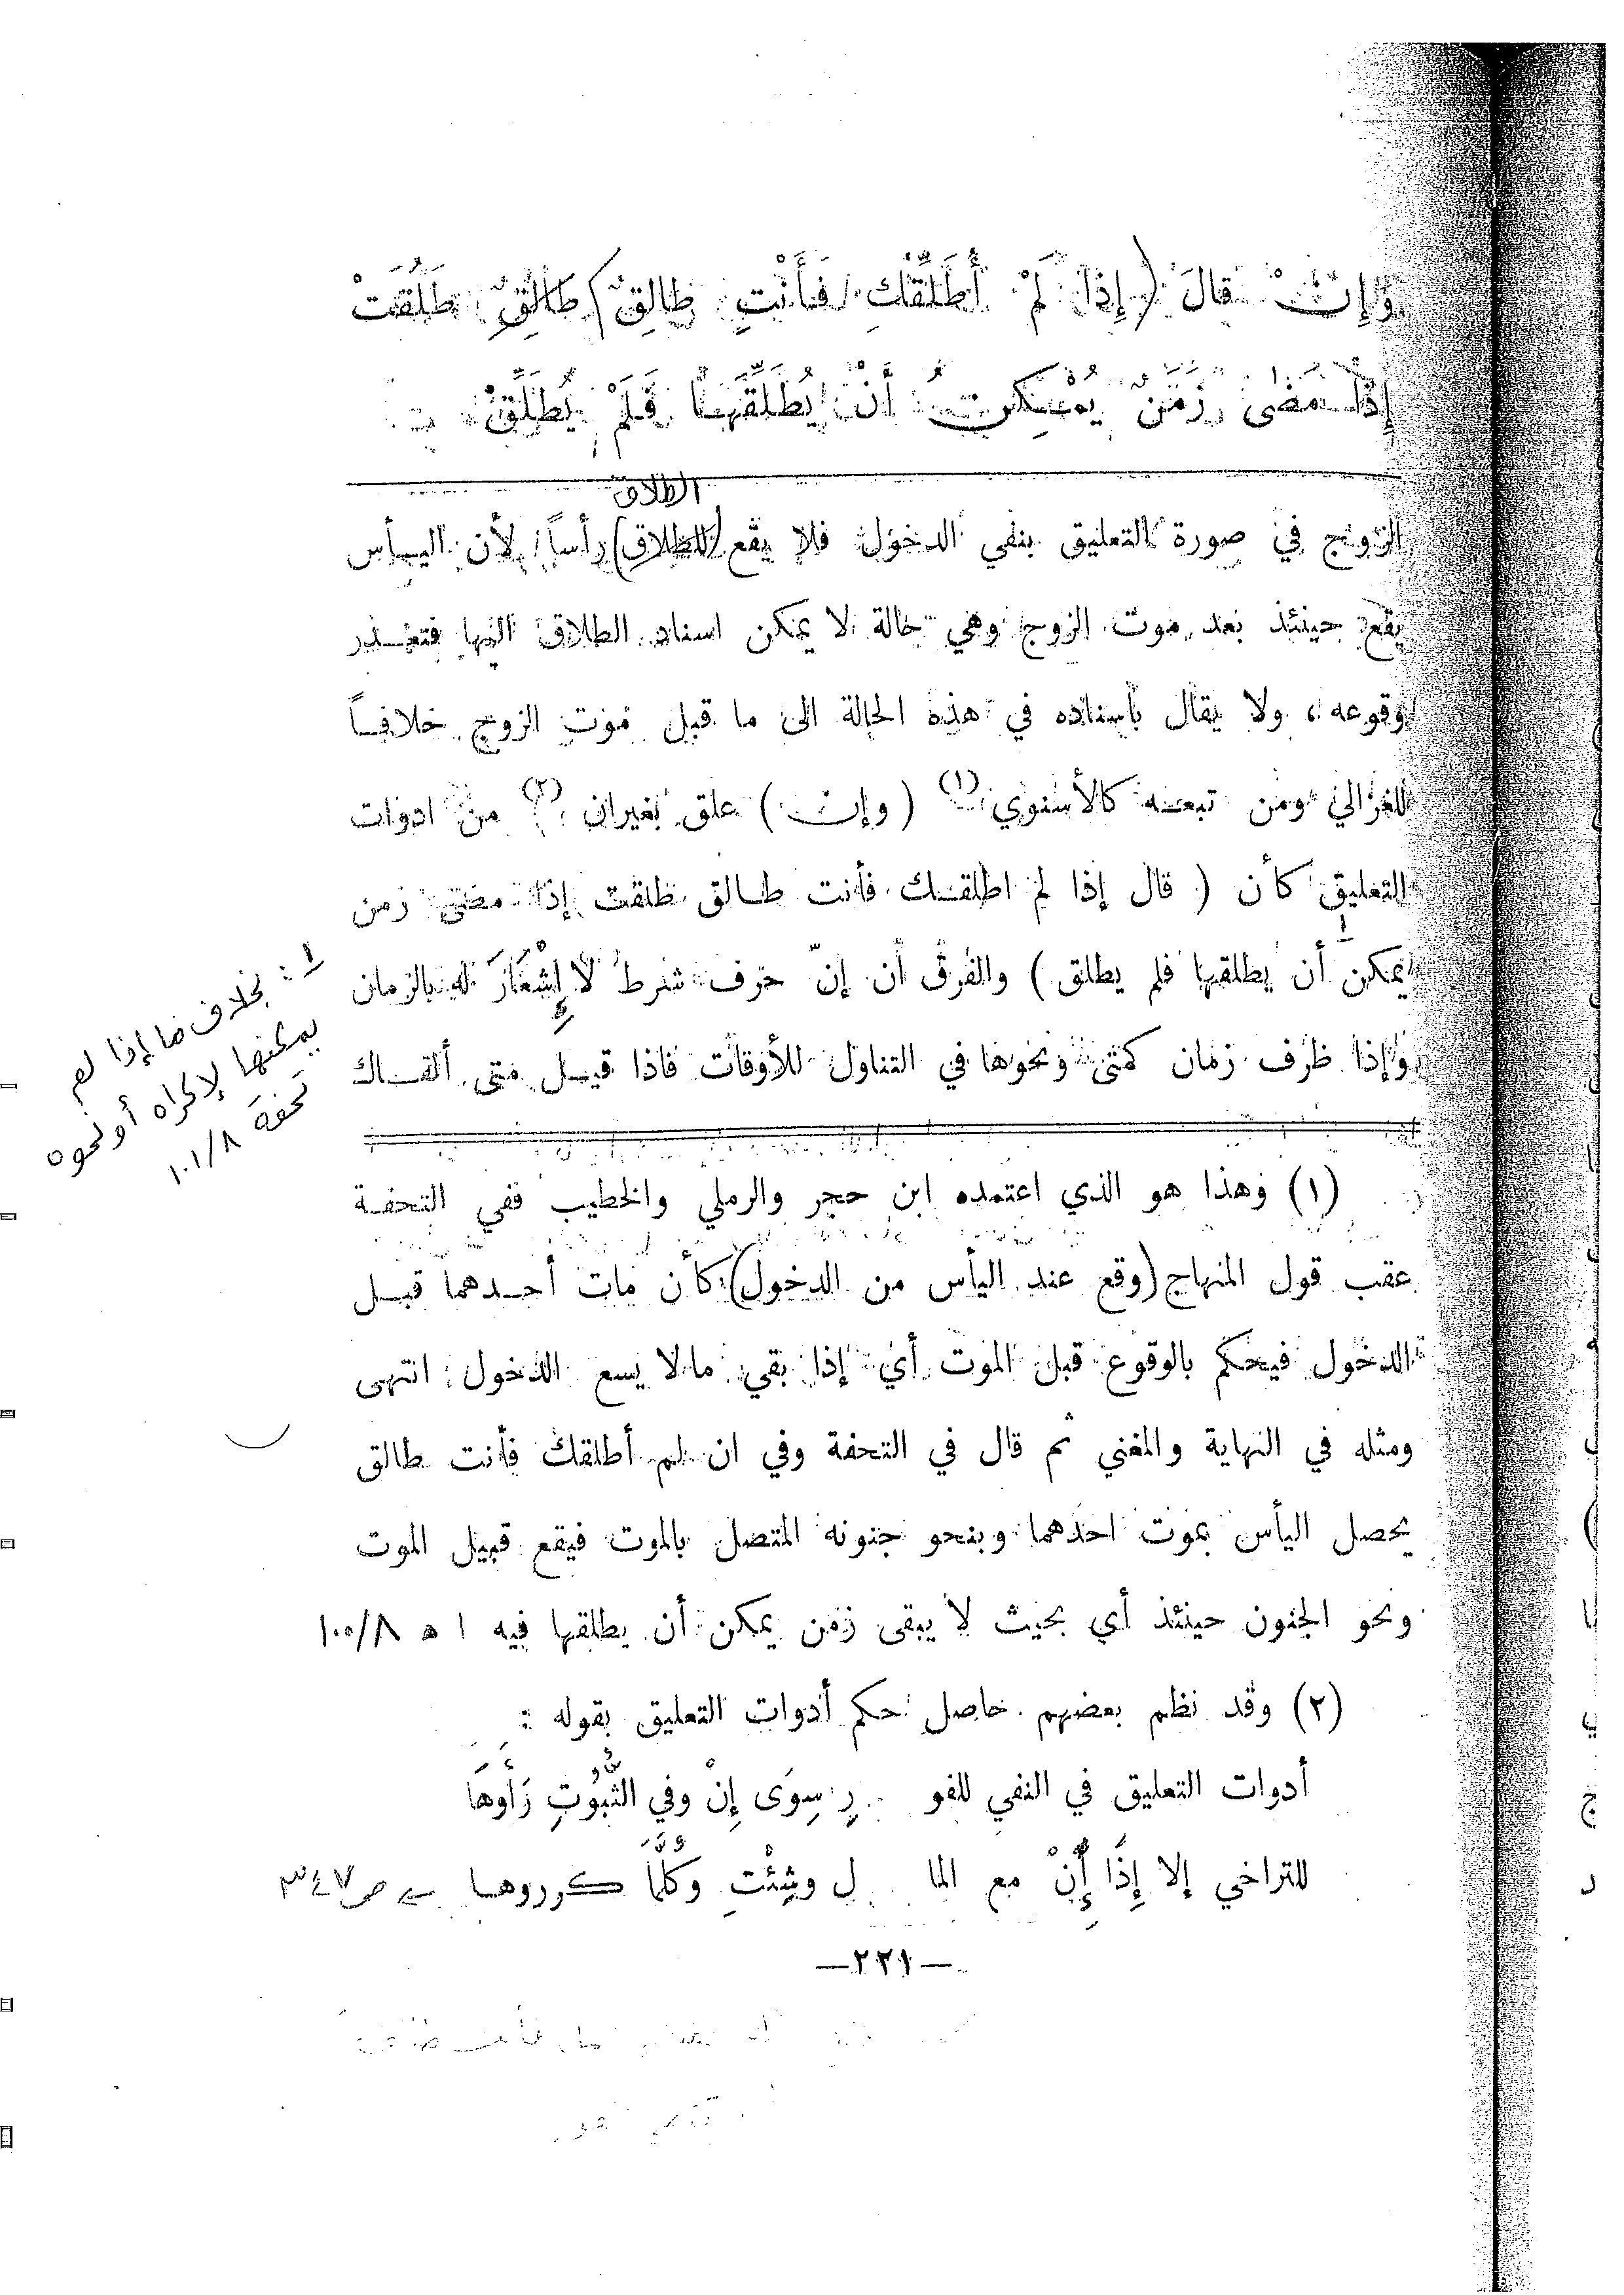 وَإِنْ قَالَ (إِذَا لَمْ أُطَلِّقْكِ فَأَنْتِ طَالِقٌ) طَالِقٌ طَلُقَتْ
إِذَا مَضَى زَمَنٌ يُمْكِنُ أَنْ يُطَلِّقَهَا فَلَمْ يُطَلِّقْ
الطلاق
الزوج في صورة التعليق بنفي الدخول فلا يقع (للطلاق) رأساً لأن اليأس
يقع حينئذ بعد موت الزوج وهي حالة لا يمكن اسناد الطلاق اليها فتعذر
وقوعه ، ولا يقال بأسناده في هذه الحالة الى ما قبل موت الزوج خلافاً
للغزالي ومن تبعه كالأسنوي (١) ( وإن ) علق بغيران (٢) من ادوات
التعليق كأن ( قال إذا لم اطلقك فأنت طالق طلقت إذا مضى زمن
يمكن أن يطلقها فلم يطلق ) والفرق أن إنّ حرف شرط لا إِشْعَارَ له بالزمان
وإذا ظرف زمان كمتى ونحوها في التناول للأوقات فاذا قيل متى ألقاك
١ : بخلاف ما إذا لم
يمكنها لإكراه أو نحوه
تحفة ١٠١/٨
(١) وهذا هو الذي اعتمده ابن حجر والرملي والخطيب ففي التحفة
عقب قول المنهاج (وقع عند اليأس من الدخول) كأن مات أحدهما قبل
الدخول فيحكم بالوقوع قبل الموت أي إذا بقي مالا يسع الدخول انتهى
ومثله في النهاية والمغني ثم قال في التحفة وفي ان لم أطلقك فأنت طالق
يحصل اليأس بموت احدهما وبنحو جنونه المتصل بالموت فيقع قبيل الموت
ونحو الجنون حينئذ أي بحيث لا يبقى زمن يمكن أن يطلقها فيه ا ه ١٠٠/٨
(٢) وقد نظم بعضهم حاصل حكم أدوات التعليق بقوله :
أدوات التعليق في النفي للفو رِ سِوَى إِنْ وفي الثُّبُوتِ رَأَوهَا
للتراخي إلا إِذَا إِنْ مع الما ل وشِئْتِ وكُلَّمَا كرروها ص ٣٤٧
—٢٢١—